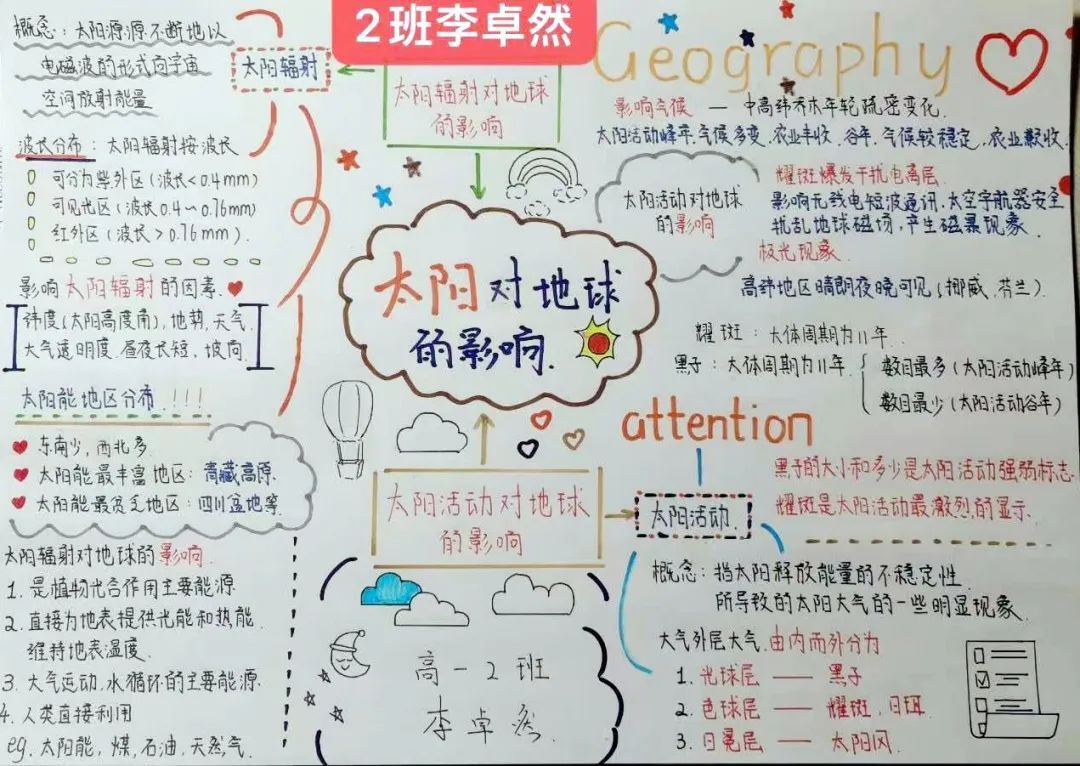 2班李卓然
Geography
概念：太阳源源不断地以
电磁波的形式向宇宙
空间放射能量
太阳辐射
波长分布：太阳辐射按波长
可分为紫外区(波长<0.4mm)
可见光区(波长0.4~0.76mm)
红外区(波长>0.76mm).
影响太阳辐射的因素.
纬度(太阳高度角),地势,天气.
大气透明度.昼夜长短,坡向.
太阳能地区分布.!!!
东南少,西北多.
太阳能最丰富地区:青藏高原.
太阳能最贫乏地区:四川盆地等.
太阳辐射对地球的影响.
1.是植物光合作用主要能源.
2.直接为地表提供光能和热能.
维持地表温度.
3.大气运动,水循环的主要能源.
4.人类直接利用
eg.太阳能,煤,石油,天然气.
太阳辐射对地球
的影响
太阳对地球
的影响.
太阳活动对地球
的影响
高一2班
李卓然.
影响气候—中高纬乔木年轮疏密变化.
太阳活动峰年.气候多变.农业丰收.谷年.气候较稳定.农业歉收.
太阳活动对地球
的影响
耀斑爆发干扰电离层.
影响无线电短波通讯.太空宇航器安全
扰乱地球磁场,产生磁暴现象.
极光现象.
高纬地区晴朗夜晚可见(挪威.芬兰).
耀斑:大体周期为11年.
黑子:大体周期为11年.
数目最多(太阳活动峰年)
数目最少(太阳活动谷年)
attention
黑子的大小和多少是太阳活动强弱标志.
耀斑是太阳活动最激烈的显示.
太阳活动.
概念:指太阳释放能量的不稳定性.
所导致的太阳大气的一些明显现象.
大气外层大气.由内而外分为
1.光球层——黑子
2.色球层——耀斑.日珥.
3.日冕层——太阳风.